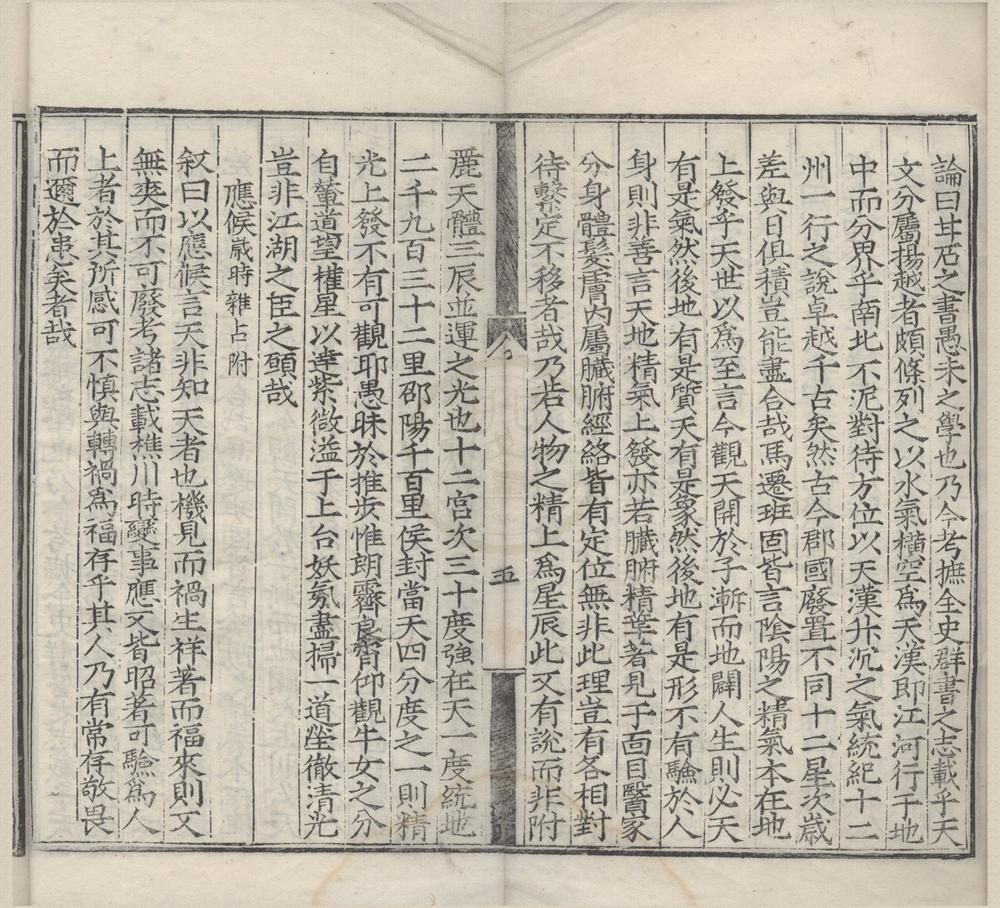 論曰甘石之書愚未之學也乃今考摭全史群書之志載乎天
文分屬揚越者頗條列之以水氣橫空爲天漢即江河行于地
中而分界乎南北不泥對待方位以天漢升沉之氣統紀十二
州一行之說卓越千古矣然古今郡國廢置不同十二星次歲
差與日俱積豈能盡合哉馬遷班固皆言陰陽之精氣本在地
上發乎天世以爲至言今觀天開於子漸而地闢人生則必天
有是氣然後地有是質天有是象然後地有是形不有驗於人
身則非善言天地精氣上發亦若臟腑精華著見于面目醫家
分身體髮膚內屬臟腑經絡皆有定位無非此理豈有各相對
待繫定不移者哉乃若人物之精上爲星辰此又有說而非附
五
麗天體三辰並運之光也十二宮次三十度強在天一度統地
二千九百三十二里邵陽千百里侯封當天四分度之一則精
光上發不有可觀耶愚昧於推步惟朗霽良宵仰觀牛女之分
自輦道望權星以達紫微溢于上台妖氛盡掃一道瑩徹清光
豈非江湖之臣之願哉
應候歲時雜占附
叙曰以應候言天非知天者也機見而禍生祥著而福來則又
無爽而不可廢考諸志載樵川時變事應又皆昭著可驗爲人
上者於其所感可不慎與轉禍爲福存乎其人乃有常存敬畏
而邇於患矣者哉